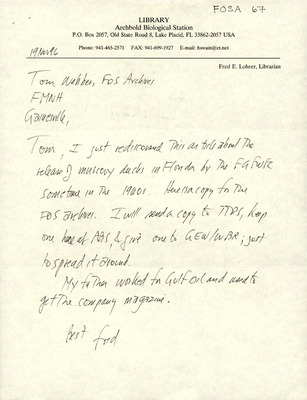 FOSA 67
LIBRARY
Archbold Biological Station
P.O. Box 2057, Old State Road 8, Lake Placid, FL 33862-2057 USA
Phone: 941-465-2571 FAX: 941-699-1927 E-mail: hswain@ct.net
19 Nov 96
Fred E. Lohrer, Librarian
Tom Webber, FOS Archives
FMNH
Gainesville,
Tom, I just rediscovered this article about the
release of muscovy ducks in Florida by the FGFWFC
sometime in the 1960s. Here is a copy for the
FOS archives. I will send a copy to TTRS, keep
one here at ABS, & give one to GEW/WBR; just
to spread it around.
My father worked for Gulf oil and used to
get the company magazine.
Best
Fred